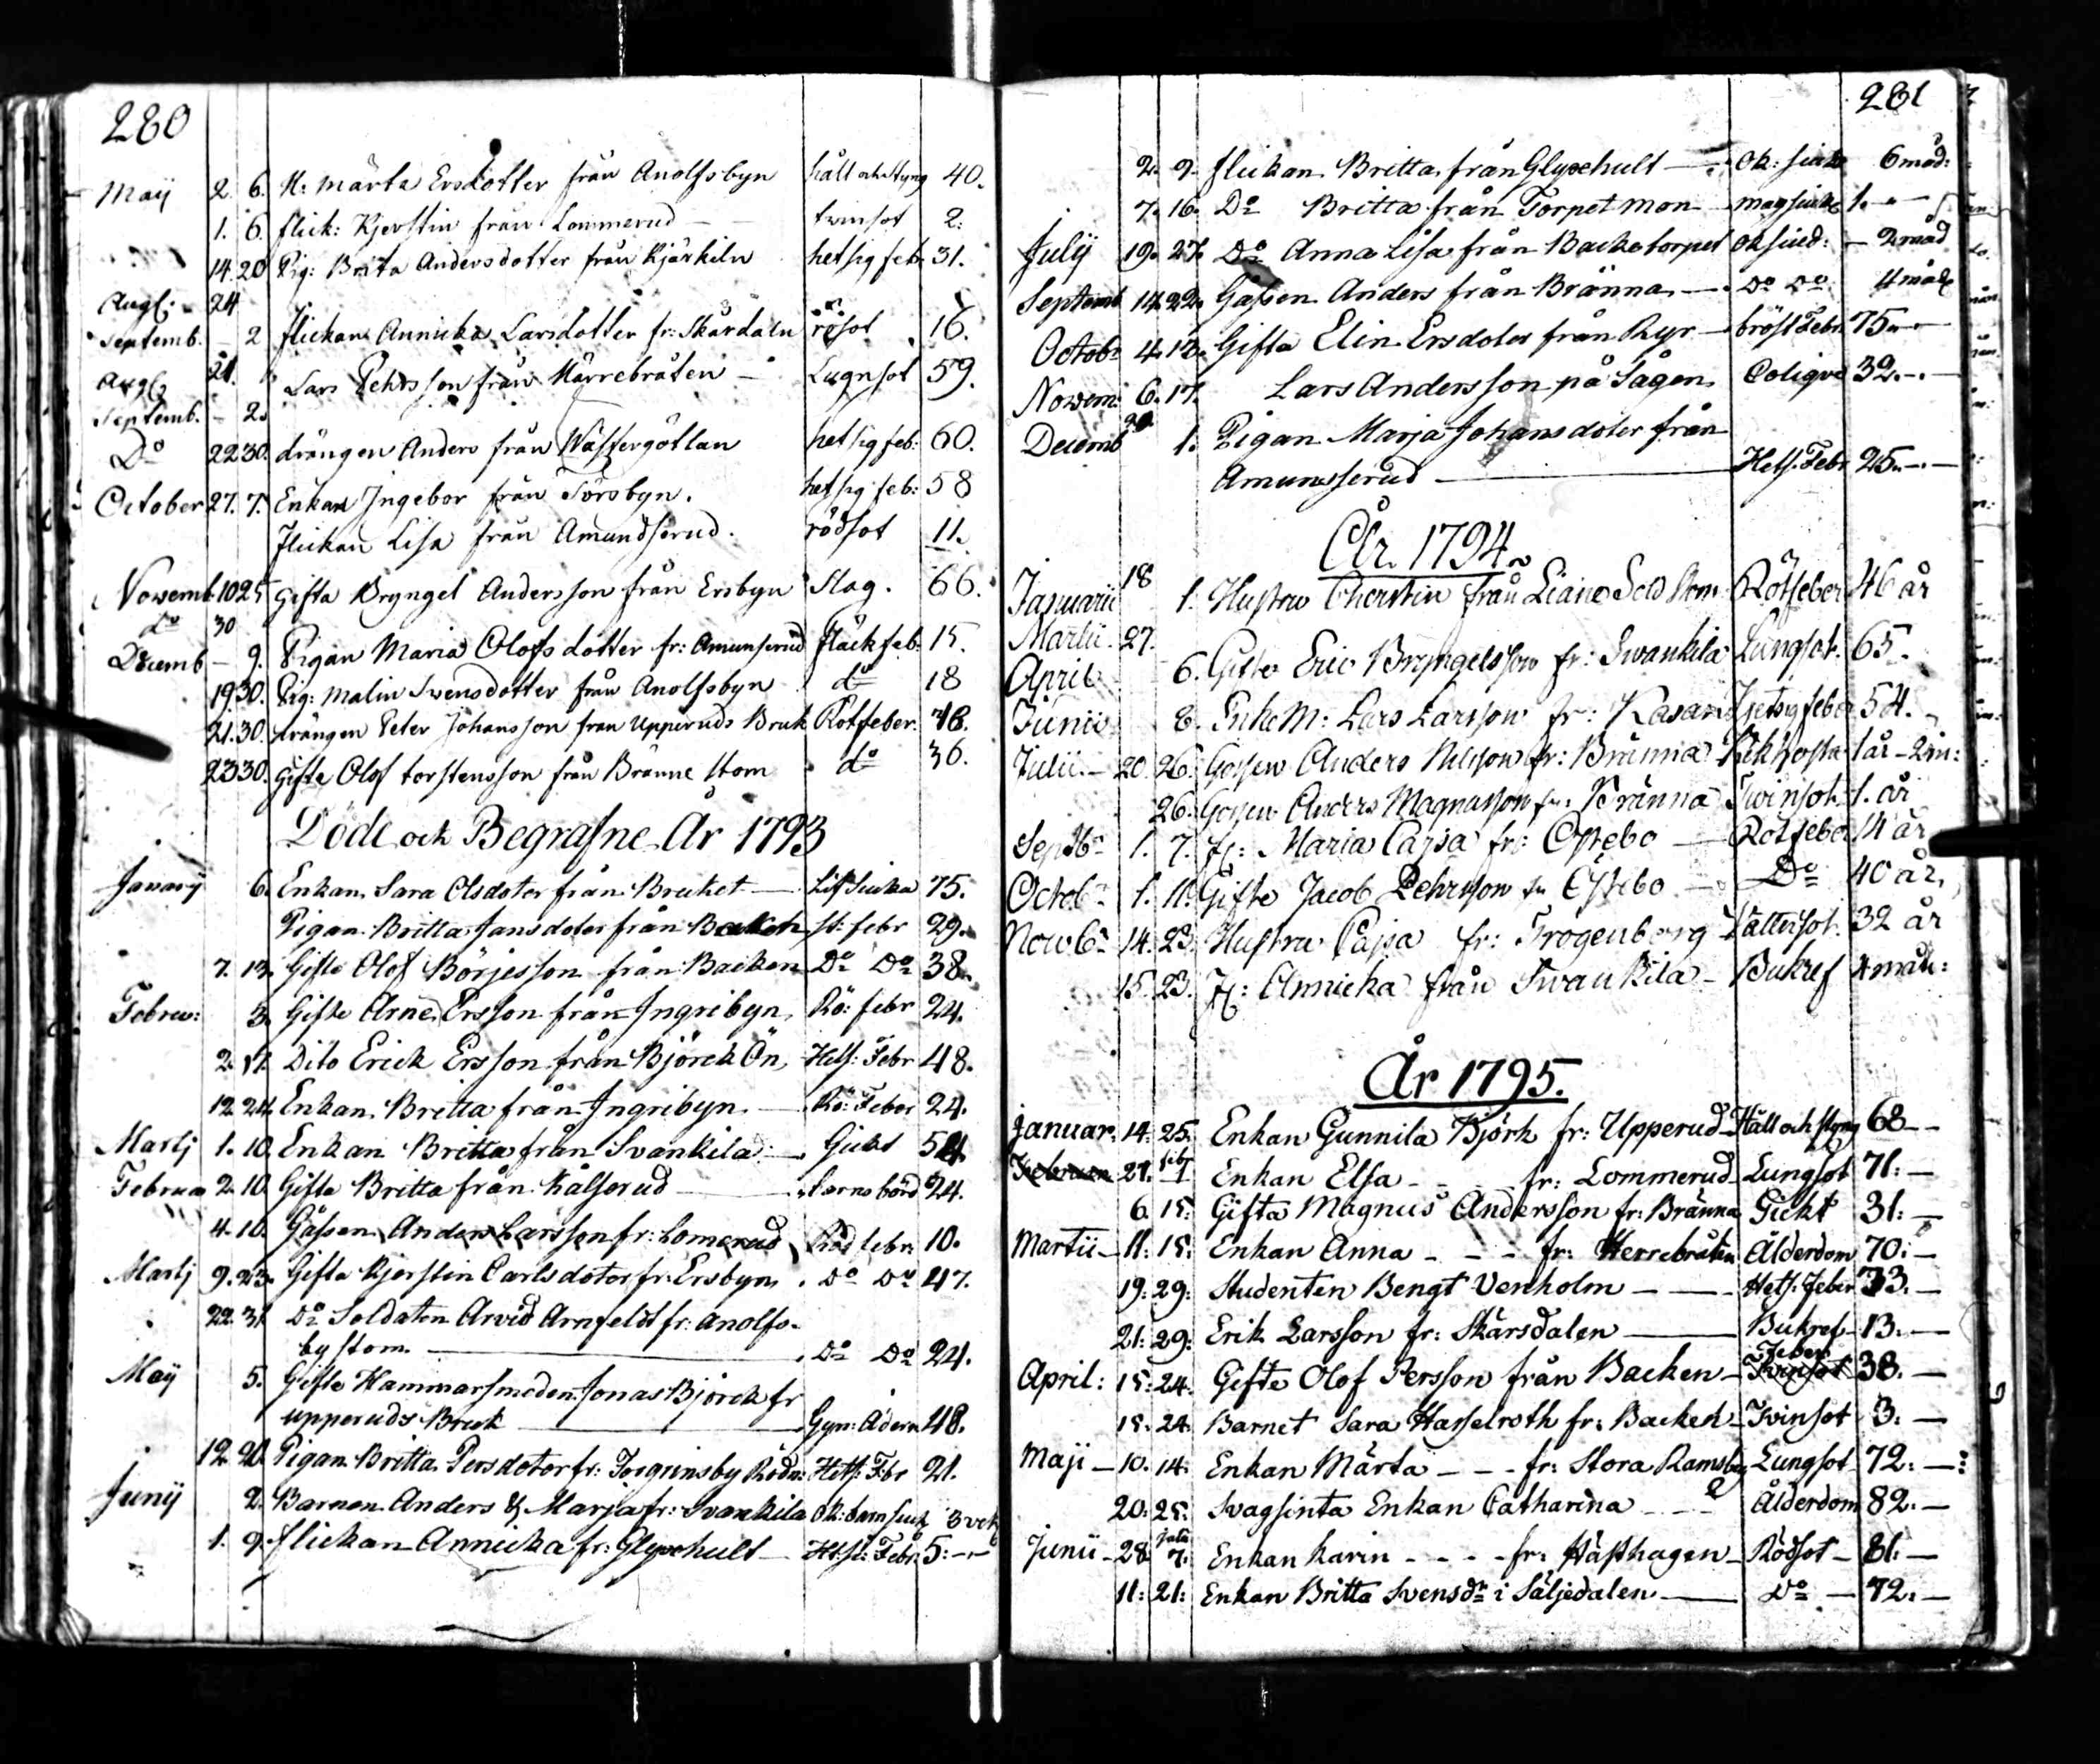 280
Maij 2 6. H: Märta Ersdotter från Anolfsbyn håll och styng 40.
1. 6. flick: Kjerstin från Lommerud twinsot 2:
14. 20 Pig: Brita Andersdotter från Kjärkiln hetsig feb: 31.
Augs: 24
Septemb. - 2 flickan Annicka Larsdotter fr: Skärdaln rösot 16.
Augs 21. Lars Pehrsson från Märrebråten Lugnsot 59.
Septemb. - 2.
Do 22 30. drängen Anders från Wästergötlan hetsig feb: 60.
October 27. 7. Enkan Ingebor från Torsbyn. hetsig feb: 58
flickan Lisa från Amundserud. rödsot 11.
Novemb 10 25 Gifta Bryngel Andersson från Ersbyn Slag. 66.
do 30
Decemb - 9. Pigan Maria Olofsdotter fr: Amunserud fläckfeb: 15.
19 30. Pig: Malin Svensdotter från Anolfsbyn do 18
21. 30. drängen Peter Johansson från Upperuds Bruk Rötfeber. 18.
23 30. Gifte Olof torstensson från Bränne stom do 36.
Döde och Begrafne År 1793
Janarij 6. Enkan Sara Olsdoter från Bruket Lifsiuka 75.
Pigan Britta Jansdoter från Backen st: febr 29.
7. 13. Gifte Olof Börjesson från Backen Do Do 38.
Febru: 3. Gifte Arne Ersson från Ingribyn, Rö: febr 24.
2. 17. Dito Erick Ersson från Björck Ön, Hets: Febr 48.
12 24. Enkan Britta från Ingribyn Rö: Feber 24.
Martj 1. 10. Enkan Britta från Svankila Gickt 54.
Februa 2. 10. Gifta Britta från Kålserud barnsbörd 24.
4. 10. Gåssen Anders Larsson fr: Lomerud Röd febr: 10.
Martj 9. 23. Gifta Kjerstin Carlsdoter fr: Ersbyn Do Do 47.
22. 31 Do Soldaten Arvid Arnfeldt fr: Anolfs-
by stom Do Do 24.
Maij 5. Gifte Hammarsmeden Jonas Björck fr
upperuds Bruk Gyn: Ådern 48.
12. 20. Pigan Britta Persdoter fr: Torgrimsby Hets: Fbr 21.
Junij 2. Barnen Anders & Marja fr: Svankila Ok: barnsiuk 3 vek
1. 9. flickan Annicka fr: Glysehult Hets: Febr 5:
281
2. 9. flickan Britta från Glysehult Ok: siuk 6 måd:
7. 16. Do Britta från Torpet mon magsiuk 1.
Julij 19. 27. Do Anna Lisa från Backetorpet Oksiud: 2 måd
Septemb 14. 22. Gåssen Anders från Bränna Do Do 4 måd
Octobr 4. 13. Gifta Elin Ersdoter från Ryr bröst Febr 75
Novem: 6. 17. Lars Andersson på Sågen Coliqve 32.
29.
Decemb 1. Pigan Marja Johansdoter från
Amunsserud Hets. Febr 25.
År. 1794.
Januarii 18 1. Hustru Cherstin från Liane Sold Stom Rötfeber 46 år
Martii 27.
April 6. Gifte Eric Bryngelsson fr: Swankila Lungsot. 65.
Junii 8. Enke M: Lars Larsson fr: Kasan Hetsig feber 54.
Julii 20. 26. Gossen Anders Nilsson fr: Bränna Kikhosta 1 år - 2 m:
26. Gossen Anders Magnusson fr: Bränna Twinsot. 1. år
Septbr 1. 7. fl: Maria Cajsa fr: Östebo Rötfeber 14 år
Octobr 1. 11. Gifte Jacob Pehrsson fr Östebo Do 40 år.
Novbr 14. 23. Hustru Cajsa fr: Trogenborg Vattusot. 32 år
15. 23. Fl: Annicka från Swankila Bukref 4 mån:
År 1795.
Januar: 14. 25. Enkan Gunnila Björk fr: Upperud Håll och styng 68
21. feb 1 Enkan Elsa fr: Lommerud Lungsot 71:
6. 15: Gifta Magnus Andersson fr: Bränna Gickt 31:
Martii 11: 15: Enkan Anna fr: Herrebråten Ålderdom 70:
19: 29: Studenten Bengt Venholm Hets: feber 33.
21: 29: Erik Larsson fr: Skärsdalen Bukref 13:
April: 15: 24: Gifte Olof Persson från Backen Feber 38.
15: 24 Barnet Sara Hasselroth fr: Backen Tvinsot 3:
Maji 10. 14: Enkan Märta fr: Stora Ramsby Lungsot 72:
20: 25: Svagsinta Enkan Catharina Ålderdom 82.
Junii 28 Julii 7: Enkan Karin fr: Hästhagen Rödsot 81:
11: 21: Enkan Britta Svensdr i Säljedalen Do 72: